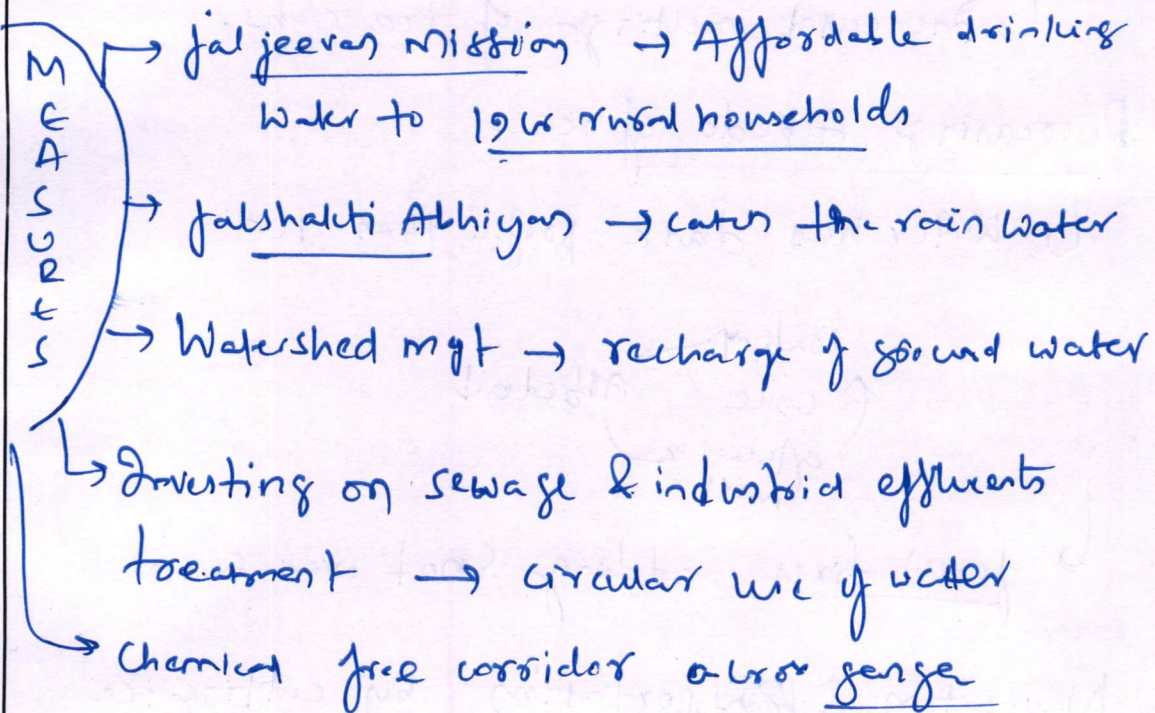 MEASURES
→ Jal jeevan Mission → Affordable drinking
water to 19 cr rural households
→ Jalshakti Abhiyan → catch the rain water
→ Watershed mgt → recharge of ground water
→ Investing on sewage & industrial effluents
treatment → circular use of water
→ Chemical free corridor across ganga